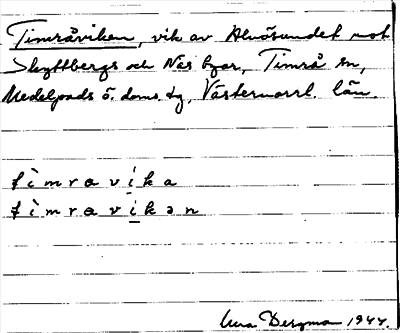 Timråviken, vik av Alnösundet mot
Skyttbergs och Näs byar, Timrå sn,
Medelpads ö. doms. tg, Västernorrl. län.
tìmravika
tìmravikən
Bergman 1944.